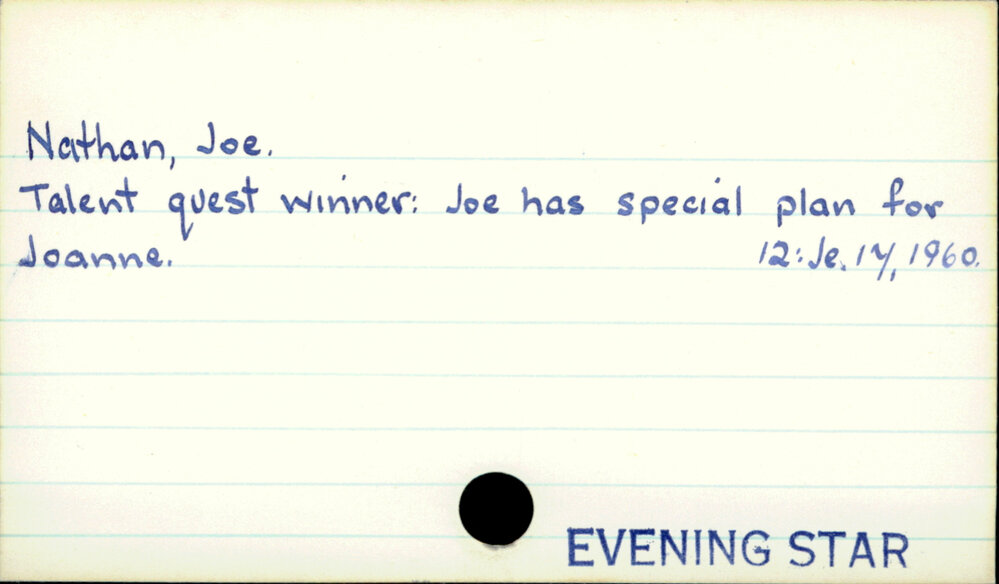 Nathan, Joe.
Talent quest winner: Joe has special plan for
Joanne. 12: Je. 17, 1960.
EVENING STAR